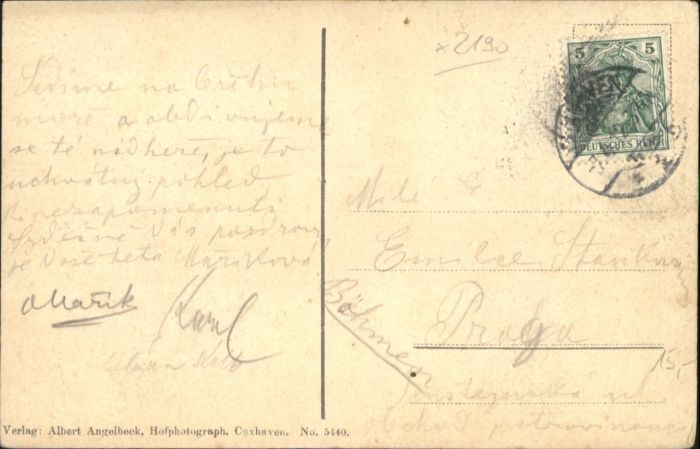 × 2190
5 5
DEUTSCHES REICH
Sedíme na břehu
moře a obdivujeme
se té nádheře, je to
uchvátný pohled
k nezapomenutí
Srdečně Vás pozdravuje
se Vaše teta Maříková
OMařík
Karel
Milé
Emilce
Praga
Böhmen
ul.
obchod potravinami
15,-
Verlag: Albert Angelbeck, Hofphotograph. Cuxhaven. No. 5440.